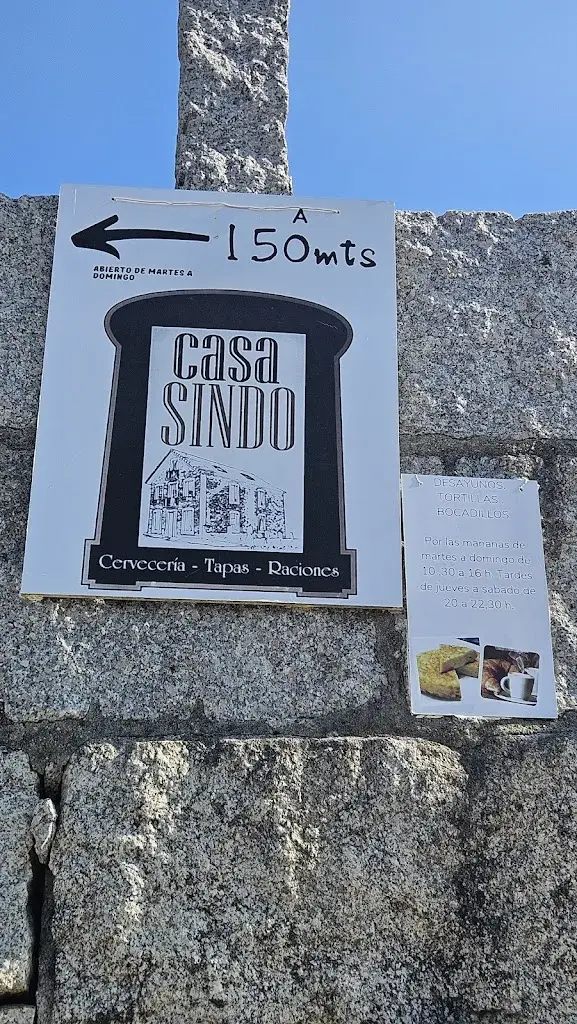 A
150mts
ABIERTO DE MARTES A
DOMINGO
casa
SINDO
Cervecería - Tapas - Raciones
DESAYUNOS.
TORTILLAS.
BOCADILLOS
Por las mañanas de
martes a domingo de
10:30 a 16 h. Tardes
de jueves a sabado de
20 a 22:30 h.